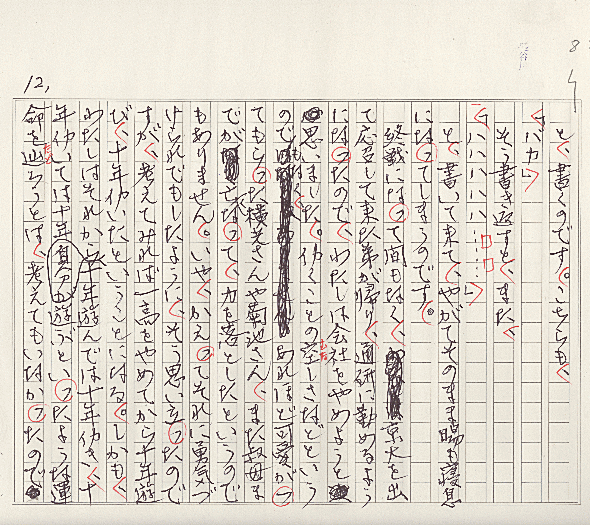 12,
と、書くのです。こちらも、
「バカ」
そう書き返すと、また、
「ハハハハ……」
と、書いて来て、やがてそのまま暘も寝息
になってしまうのです。
終戦になって間もなく、京大を出
て応召して来た弟が帰り、通研に勤めるよう
になったので、わたしは会社をやめようと
思いました。働くことの空しさなどという
のでもなく、あれほど可愛がっ
てもらった横光さんや菊池さん、また叔母ま
でが亡くなって、力を落としたというので
もありません。いや、かえってそれに勇気づ
けられでもしたように、そう思い立ったので
すが、考えてみれば一高をやめてから十年遊
び、十年働いたということになる。しかも、
わたしはそれから十年遊んでは十年働き、十
年働いては十年遊ぶといったような運
命を辿ろうとは、考えてもいなかったので